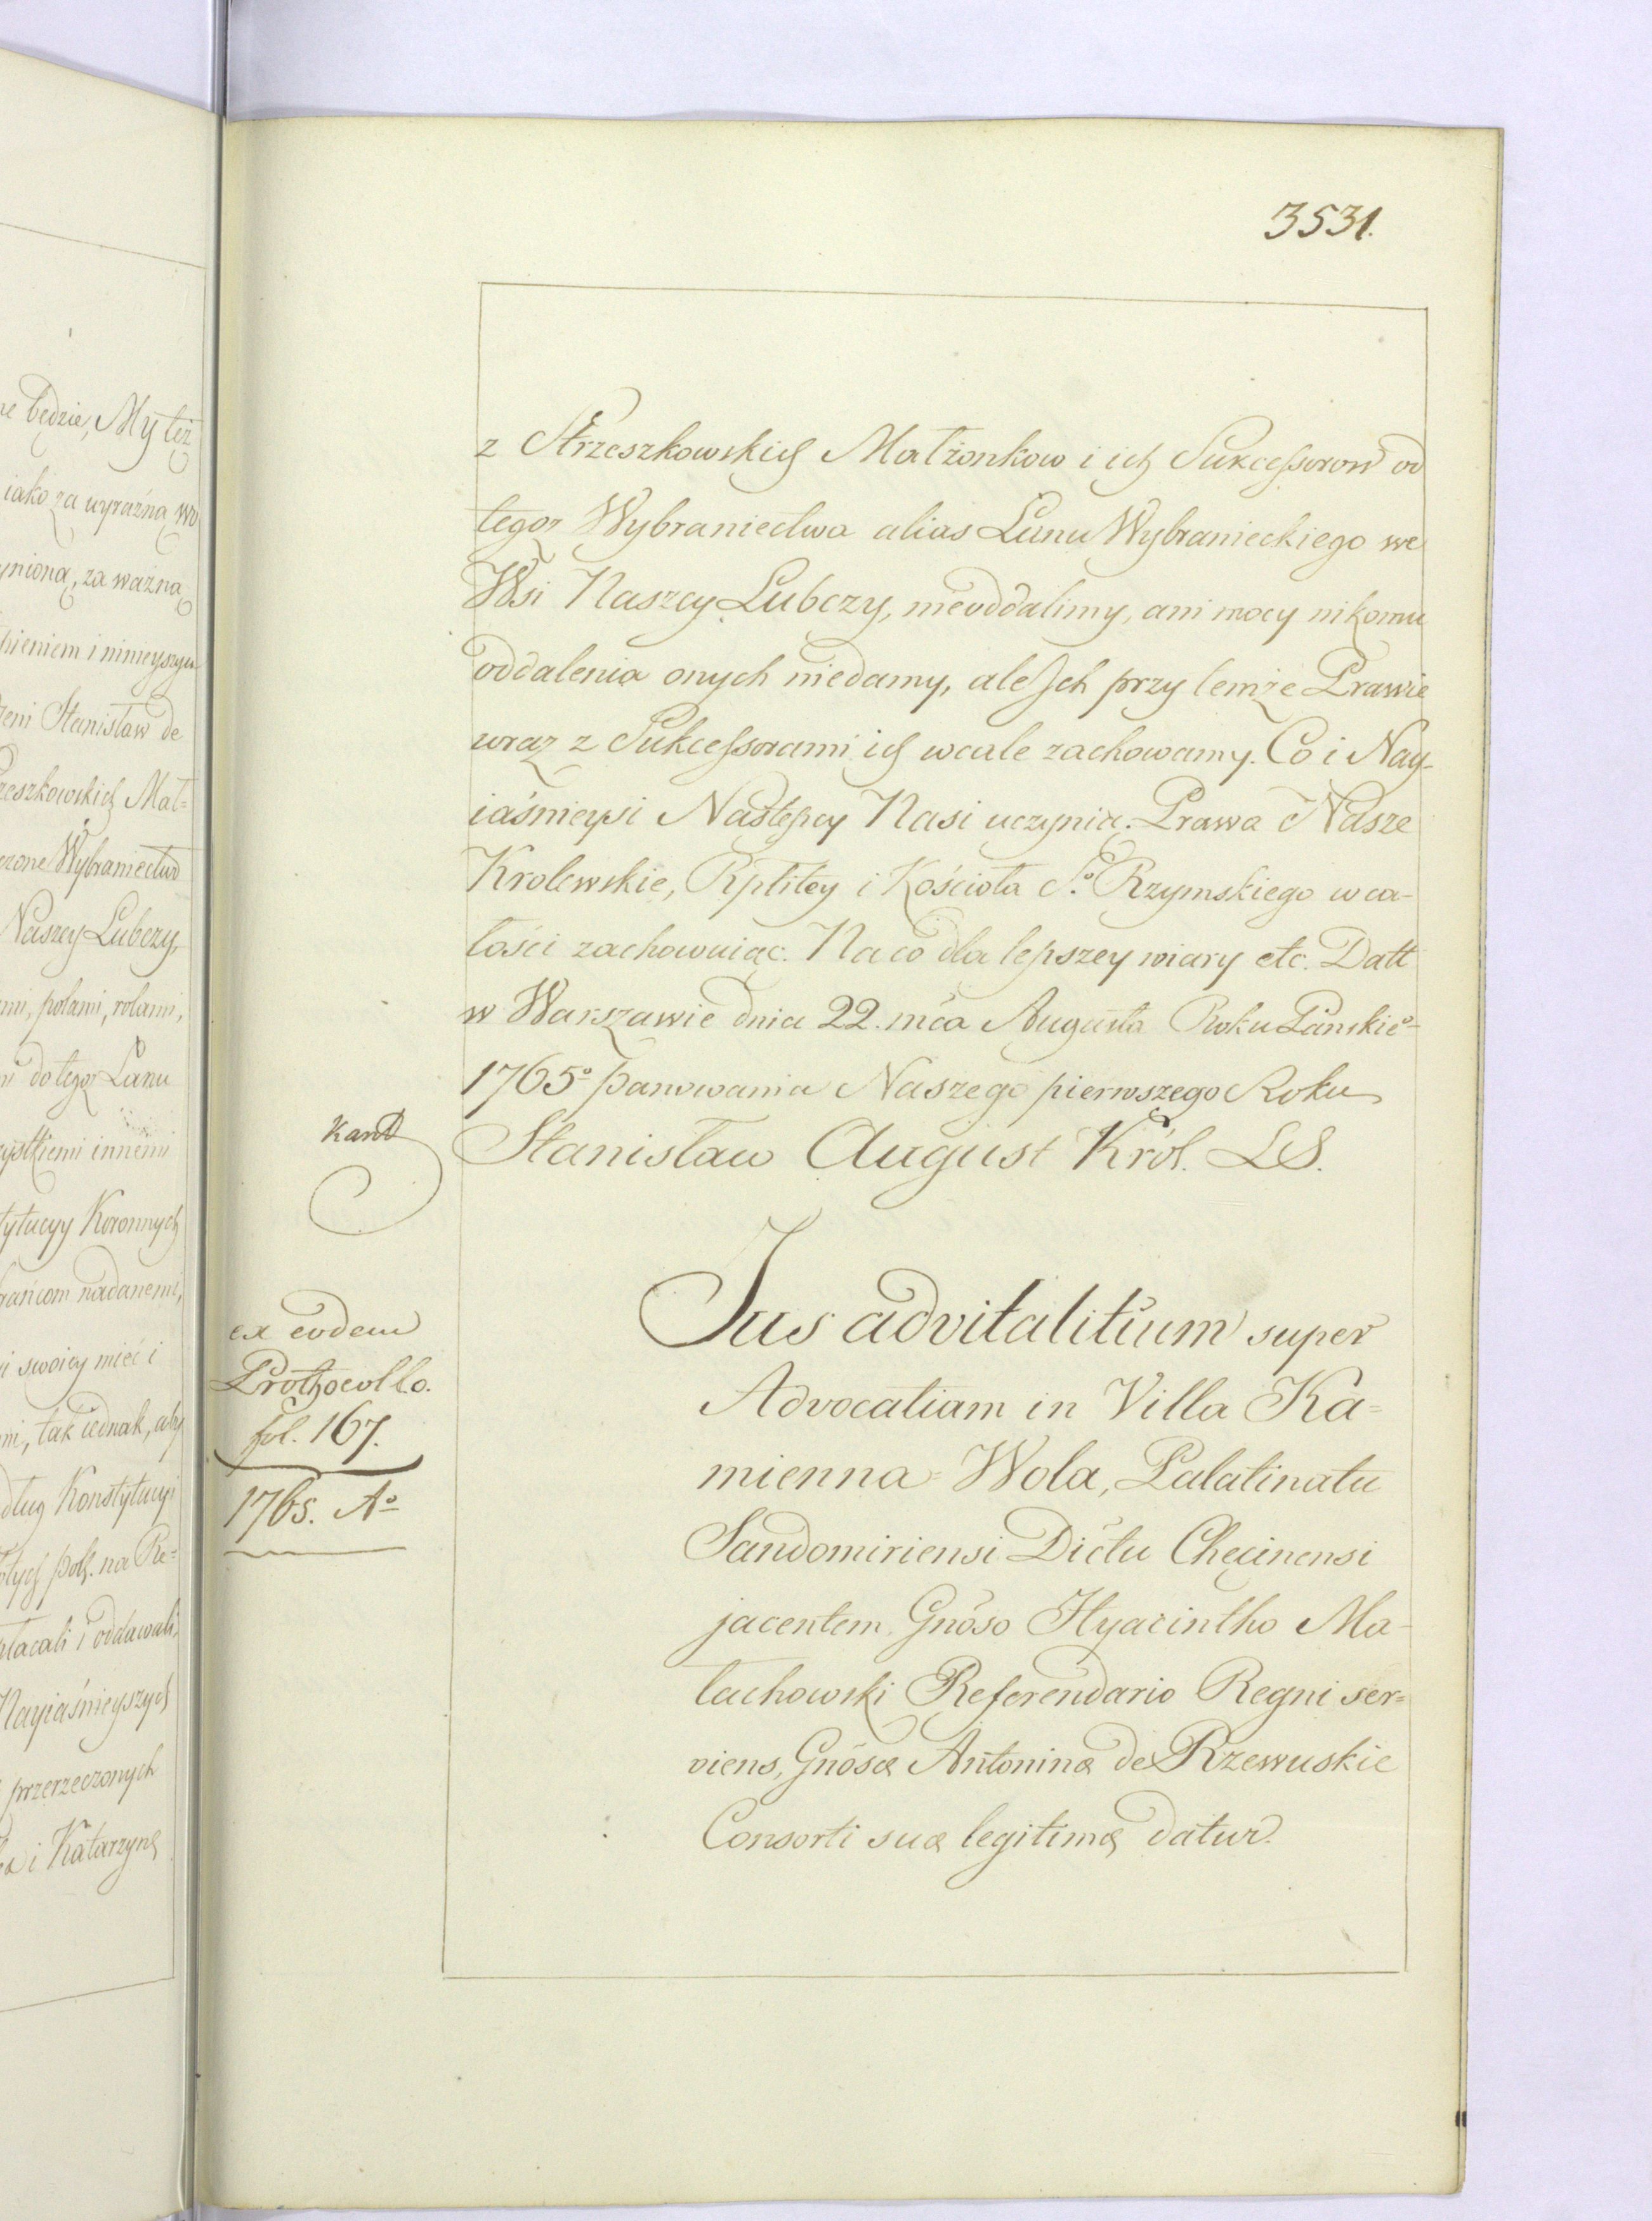 3531.
z Strzeszkowskich Małżonkow i ich Sukcessorow od
tegoz Wybraniectwa alias Łanu Wybranieckiego we
Wsi Naszey Lubczy, nieoddalimy, ani mocy nikomu
oddalenia onych niedamy, ale Ich przy temże Prawie
wraz z Sukcessorami ich wcale zachowamy. Co i Nay-
iaśnieysi Następcy Nasi uczynią. Prawa Nasze
Krolewskie, Rpltey i Kościoła S.º Rzymskiego w ca-
łości zachowuiąc. Na co dla lepszey wiary etc. Datt
w Warszawie dnia 22. mca Augusta Roku Panskieº
1765º panowania Naszego pierwszego Roku
Stanisław August Król. LS.
Kant
ex eodem
Prothocollo.
fol. 167.
1765. Aº
Jus advitalitium super
Advocatiam in Villa Ka=
mienna=Wola, Palatinatu
Sandomiriensi Dictu Chęcinensi
jacentem, Gnoso Hyacintho Ma-
łachowski Referendario Regni ser=
viens, Gnosæ Antoninæ de Rzewuskie
Consorti suæ legitimæ datur.
ne będzie, My też
iako za wyraźną wo
ynioną, za ważną
pieniem i ninieyszym
zeni Stanisław de
rzeszkowskich Mał=
czone Wybraniectwo
Naszey Lubczy,
mi, polami, rolami,
mi do tegoz Łanu
zystkiemi innemi
tytucyy Koronnych
rańcom nadanemi,
i swoiey mieć i
ni, tak iednak, aby
dług Konstytucyi
otych pols. na Re=
płacali i oddawali.
Nayiaśnieyszych
przerzeczonych
ka i Katarzynę